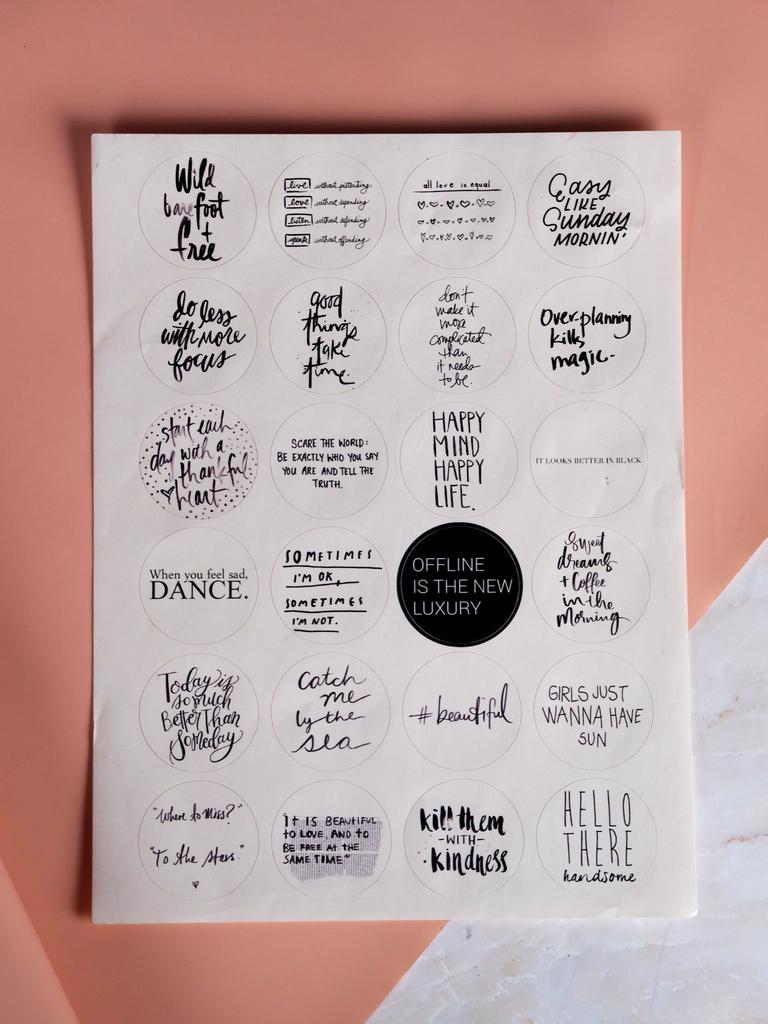 Wild
barefoot
+
free
live without pretending
love without depending
listen without defending
speak without offending
all love is equal
Easy
LIKE
Sunday
MORNIN'
do less
with more
focus
good
things
take
time.
don't
make it
more
complicated
than
it needs
to be.
Over-planning
kills
magic.
start each
day with a
thankful
heart.
SCARE THE WORLD:
BE EXACTLY WHO YOU SAY
YOU ARE AND TELL THE
TRUTH.
HAPPY
MIND
HAPPY
LIFE.
IT LOOKS BETTER IN BLACK
When you feel sad,
DANCE.
SOMETIMES
I'M OK,
SOMETIMES
I'M NOT.
OFFLINE
IS THE NEW
LUXURY
Sweet
dreams
+ Coffee
in the
Morning
Today is
so much
Better Than
Someday
Catch
me
by the
sea
#beautiful
GIRLS JUST
WANNA HAVE
SUN
"Where to Miss?"
"To the stars."
IT IS BEAUTIFUL
TO LOVE, AND TO
BE FREE AT THE
SAME TIME"
kill them
-WITH-
kindness
HELLO
THERE
handsome